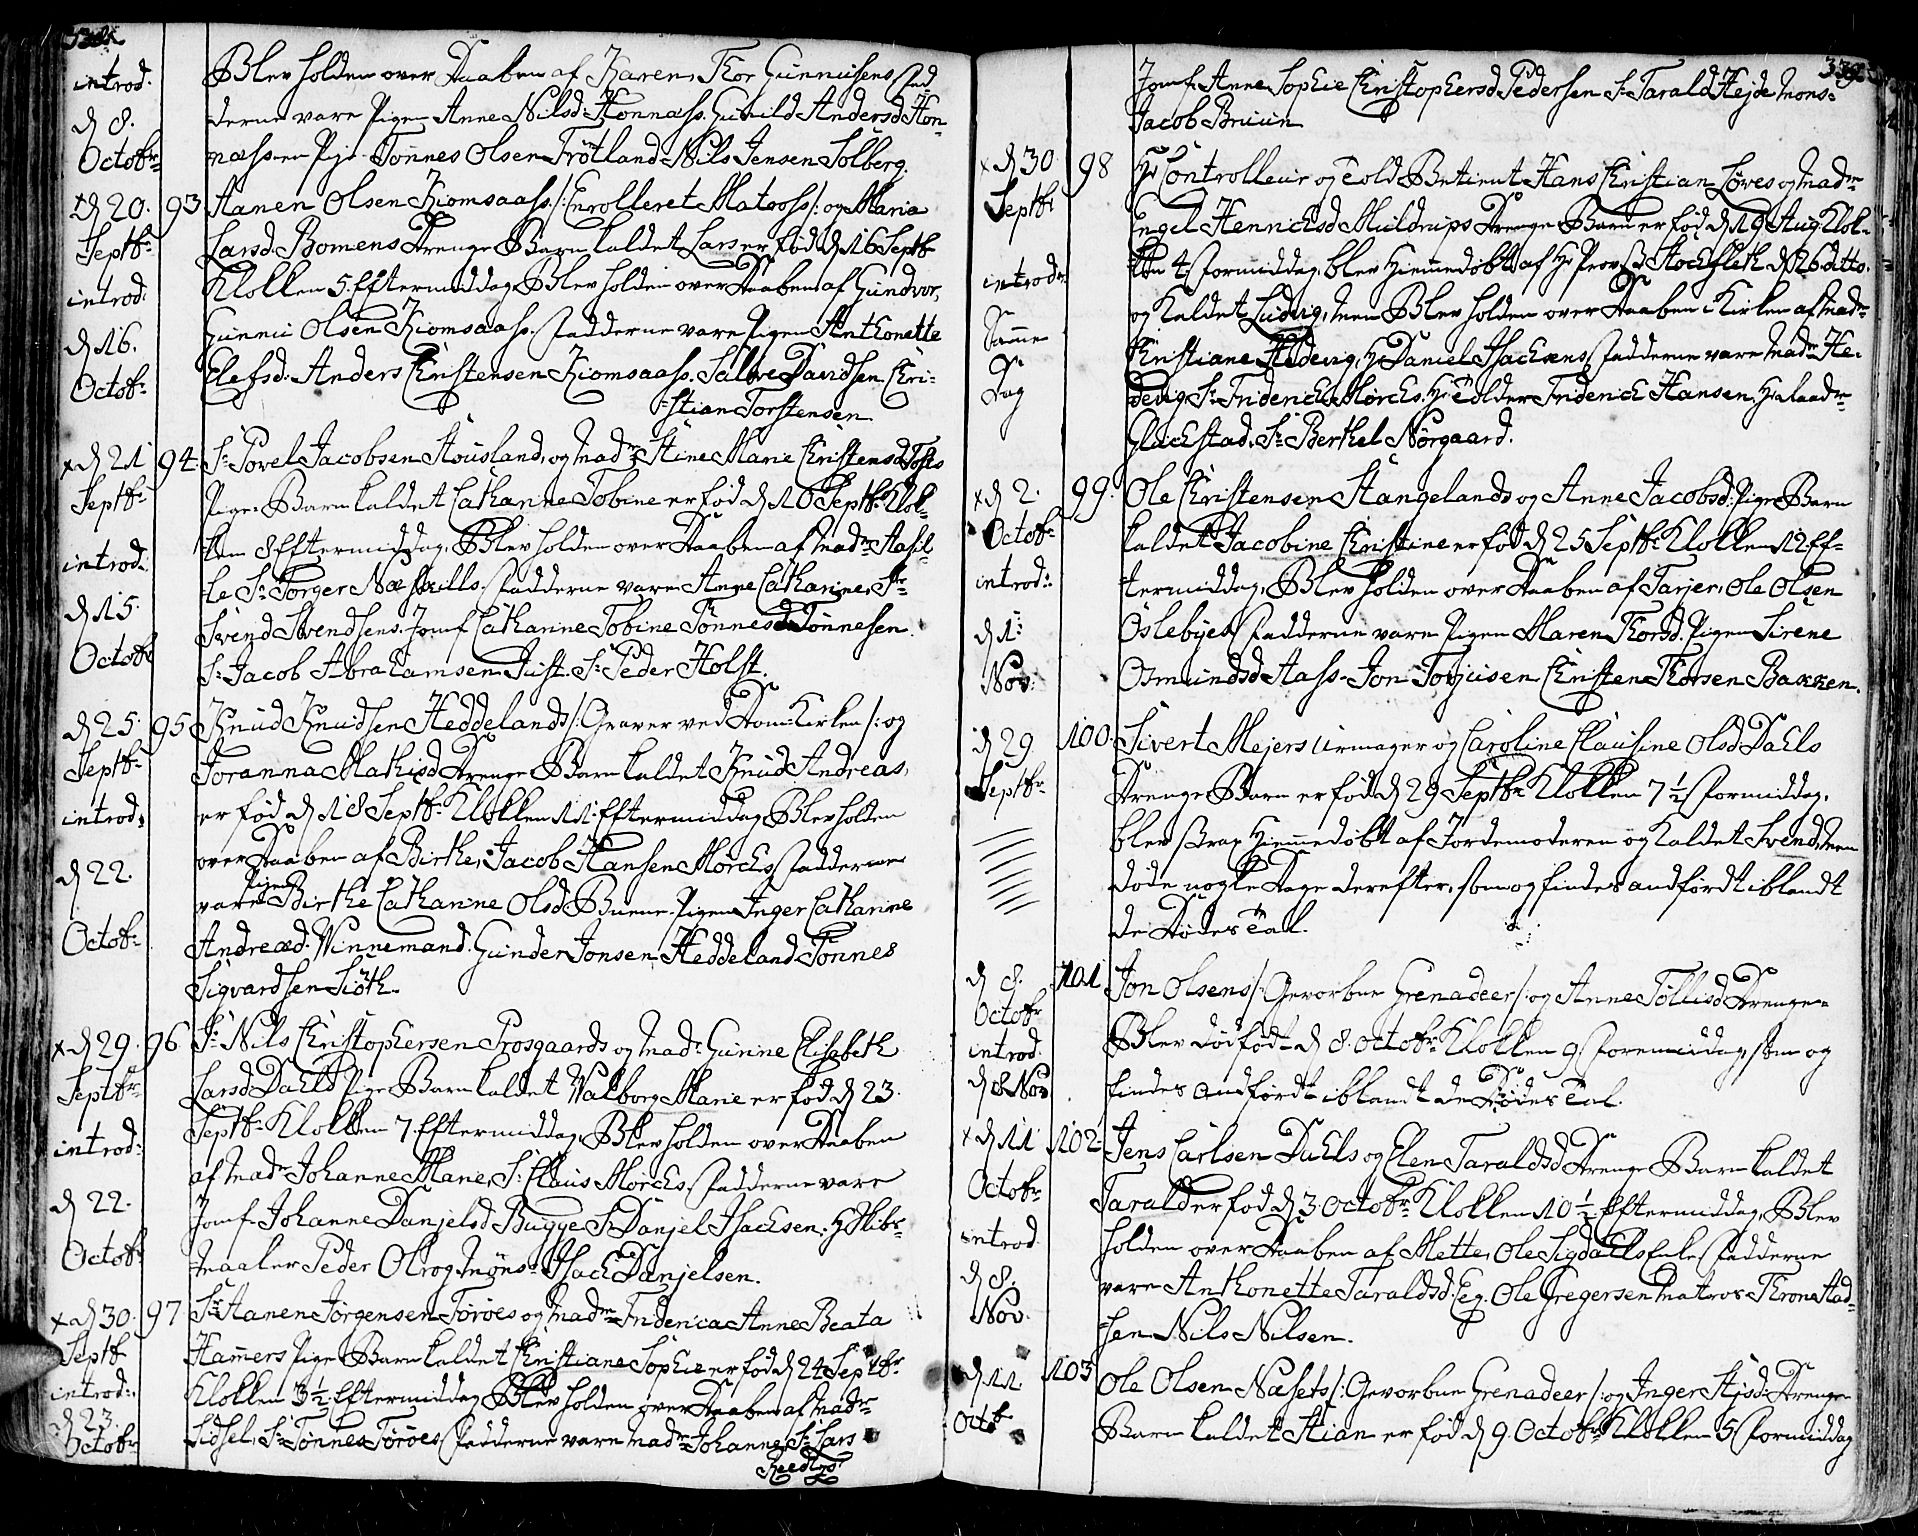 introd.
d 8.
Octobr:
Blev holden over Daaben af Karen, Thor Gunnusens, Fad-
derne vare Pigen Anne Nilsd: Honnass. Gunild Andersd Hon-
nass en Pige. Tönnes Olsen Trötland Nils Jensen Solberg.
d 20. 93
Septbr:
introd:
d 16.
Octobr:
Hanen Olsen Kiomsaass /: Enrolleret Matross /: og Maria
Larsd Bomens Drenge Barn kaldet Lars er fød d 16 Septbr
Klokken 5 Eftermiddag, Blev holden over Daaben af Gundvor,
Gunnu Olsen Kiomsaass. Fadderne vare Pigen Anthonette
Elefsd: Anders Christensen Kiomsaass. Salve Davidsen Chri-
=stian Torstensen
x d 21 94
Septbr:
introd:
d 15.
Octobr
Sr: Povel Jacobsen Housland, og Madm Stine Marie Christensd Tofts
Pige-Barn kaldet Cathanne Tobine er fød d 10 Septbr: Klok-
ken 8 Eftermiddag, Blev holden over Daaben af Madm Aasil-
le Sr: Torger Fadderne vare Anne Catharine, Sr:
Svend Svendsens. Jomf Catharine Tobine Tönnesd Tönnesen.
Sr: Jacob Abrahamsen Juist. Sr: Peder Holst.
d 25. 95
Septbr:
introd:
d 22.
Octobr:
Knud Knudsen Heddelands /: Graver ved Dom-Kirken /: og
Joranna Mathisd Drenge Barn kaldet Knud Andreas,
er fød d 18 Septbr: Klokken 11 Eftermiddag, Blev holden
over Daaben af Birthe, Jacob Hansen Mörchs, Fadderne
vare Pigen Birthe Catharine Olsd Buene. Pigen Inger Catharine
Andreæd. Vinnemand. Gunder Jonsen Heddeland Tönnes
Sigvardsen Siöth.
x d 29. 96
Septbr:
introd:
d 22.
Octobr
Sr: Nils Christophersen Prosgaards og Mad: Gurine Elisabeth
Larsd Dahls Pige Barn kaldet Walborg Marie er fød d 23.
Septbr: Klokken 7 Eftermiddag, Blev holden over Daaben
af Madm Johanne Marie, Sr: Claus Morchs, Fadderne vare
Jomf. Johanne Danjelsd Bugge Sr Danjel Isachsen, Hr Skibs-
Maaler Peder Olrog. Mons: Isach Danjelsen.
x d 30. 97
Septbr
introd:
d 23.
Octobr:
Sr: Hanen Jörgensen Töröes og Madm Fridericia Anne Beata
Hamers Pige Barn kaldet Christiane Sophie er fød d 24 Septbr
Klokken 3½ Eftermiddag Blev holden over Daaben af Madm
Sidsel, Sr: Tönnes Töröes, Fadderne vare Madm Johanne, Sr: Lars
Reedtzs
339
Jomf: Anne Sophie Christophersd Pedersen Sr: Tarald Hejde Mons:
Jacob Bruun
x d 30. 98
Septbr
introdr
Samme
Dag
Hr Controlleur og Told-Betient Hans Christian Löves og Madm
Engel Henrichsd Muldrups Drenge Barn er fød d 19 Aug: Klok-
ken 4 Formiddag, blev Hiemedøbt af Hr Prov: Hochflith d 26 ditto.
og Kaldet Ludvig, men Blev holden over Daaben i Kirken af Madm
Christiane Hedevig, Hr Daniel Isachsens, Fadderne vare Madm He-
devig, Sr: Friderich Mörchs. Hr Tolder Friderich Hansen, Hr Raadm
Glückstad, Sr: Berthel Nörgaard.
x d 2. 99.
Octobr
introd:
d 1:
Nov:
Ole Christensen Stangelands og Anne Jacobsd: Pige Barn
kaldet Jacobine Christine er fød d 25 Septbr: Klokken 12 Ef-
termiddag, Blev holden over Daaben af Tarjer, Ole Olsen
Oslebyes Fadderne vare Pigen Maren Thorsd. Pigen Sirene
Osmundsd Aass. Jon Torjusen Christen Thorsen Bakken.
d 29. 100.
Septbr:
Sivert Mejers Urmager og Caroline Clausine Olsd Dahls
Drenge Barn er fød d 29 Septbr Klokken 7½ Formiddag,
blev strax Hiemmedøbt af Jordemoderen og Kaldet Svend, men
døde nogle Dage derefter, som og findes andfördt iblandt
de Dødes Tal.
d 8. 101
Octobr
introd.
d 8 Nov
Jon Olsens /: Gevorbne Grenadeer /: og Anne Tölliisd Drenge-
Blev dödfødt d 8. Octobr: Klokken 9 Formiddag, som og
findes andfördt iblandt de Dødes Tal.
x d 11 102.
Octobr:
introd.
d 8.
Nov.
Jens Carlsen Dahls og Elen Taraldsd Drenge Barn kaldet
Tarald er fød d 3 Octobr: Klokken 10½ Eftermiddag, Blev
holden over Daaben af Mette, Ole Sigdahls Enke Fadderne
vare Anthonette Taraldsd: Eeg. Ole Gregersen Matros Thron Aad-
=sen Nils Nilsen.
d 11. 103
Octb
Ole Olsen Næsets /: Gevorbne Grenadeer /: og Inger Stjsd: Drenge
Barn kaldet Stian er fød d 9. Octobr: Klokken 5 Formiddag